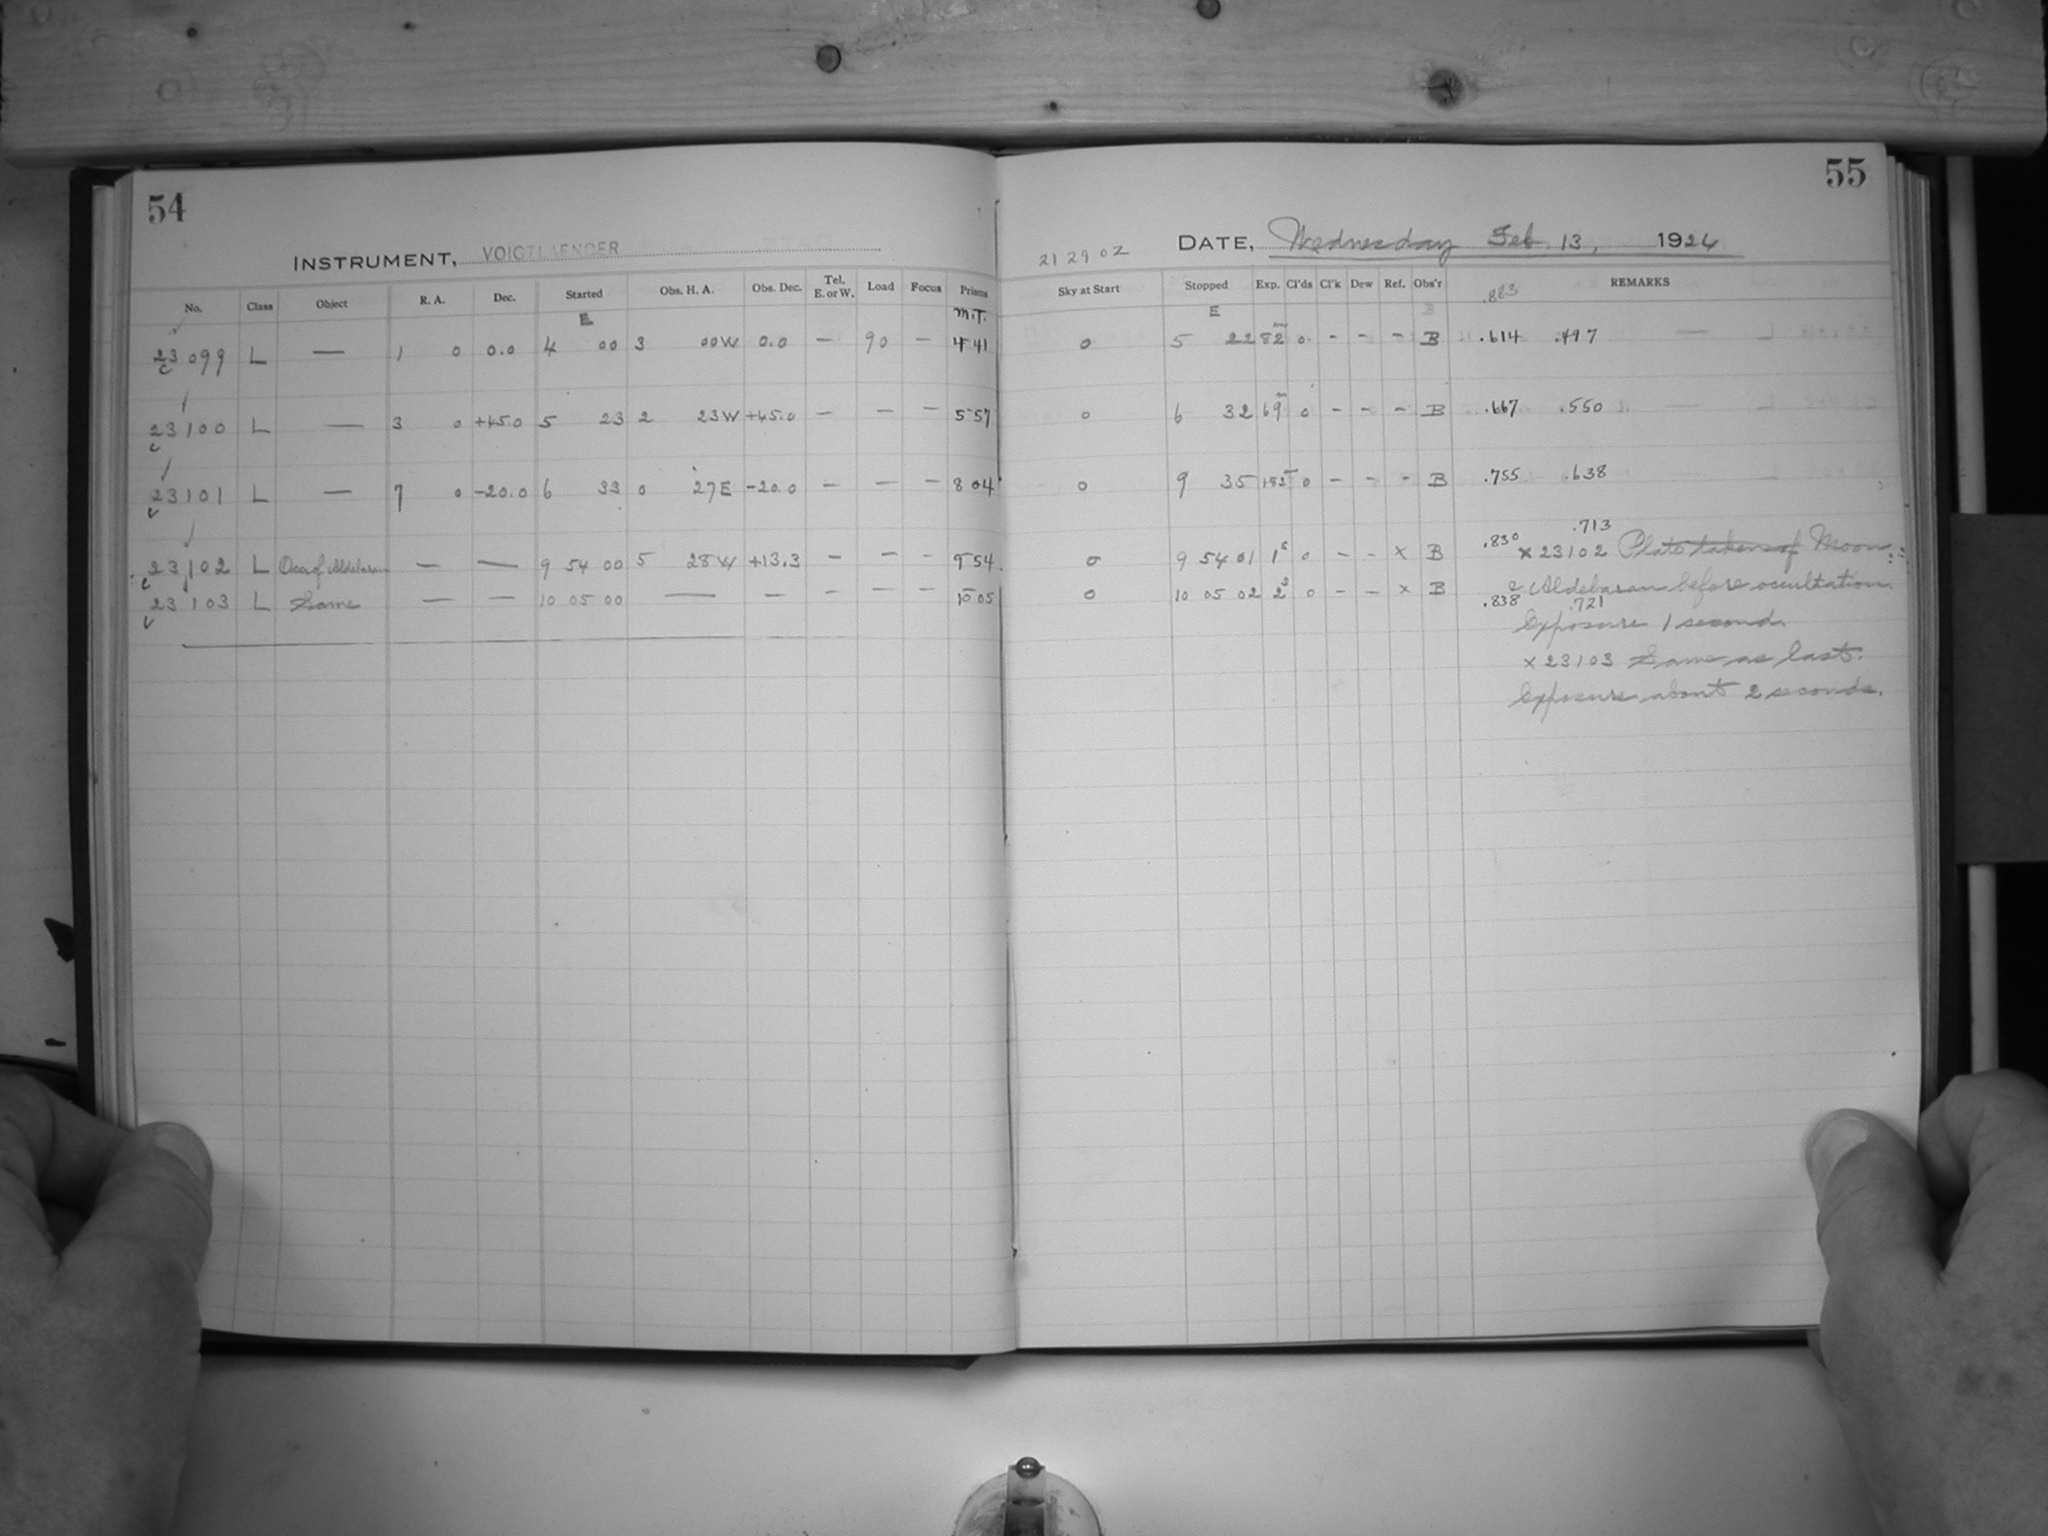 54
INSTRUMENT, VOIGTLAENDER
No. Class Object R. A. Dec. Started Obs. H. A. Obs. Dec. Tel. E. or W. Load Focus Prisms
E M.T.
23099 L — 1 0 0.0 4 00 3 00W 0.0 — 90 — 4 41
c
23100 L — 3 0 +45.0 5 23 2 23W +45.0 — — — 5 57
c
23101 L — 7 0 -20.0 6 33 0 27E -20.0 — — — 8 04
c
23102 L Occ of Aldebaran — — 9 54 00 5 28W +13.3 — — — 9 54
c
23103 L Same — — 10 05 00 — — — — — 10 05
c
55
21 29 02
DATE, Wednesday Feb. 13, 1924
Sky at Start Stopped Exp. Cl'ds Cl'k Dew Ref. Obs'r REMARKS
E .883
0 5 22 82m 0 - - - B .614 .497
0 6 32 69m 0 - - - B .667 .550
0 9 35 182 0 - - - B .755 .638
.830 .713
0 9 54 01 1s 0 - - x B x 23102 Plate taken of Moon
0 10 05 02 2s 0 - - x B & Aldebaran before occultation.
.838 .721
Exposure 1 second.
x 23103 Same as last.
Exposure about 2 seconds.